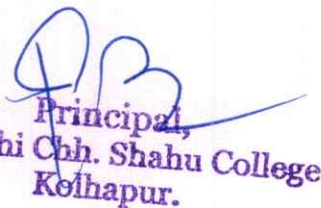 Principal,
hi Chh. Shahu College
Kolhapur.